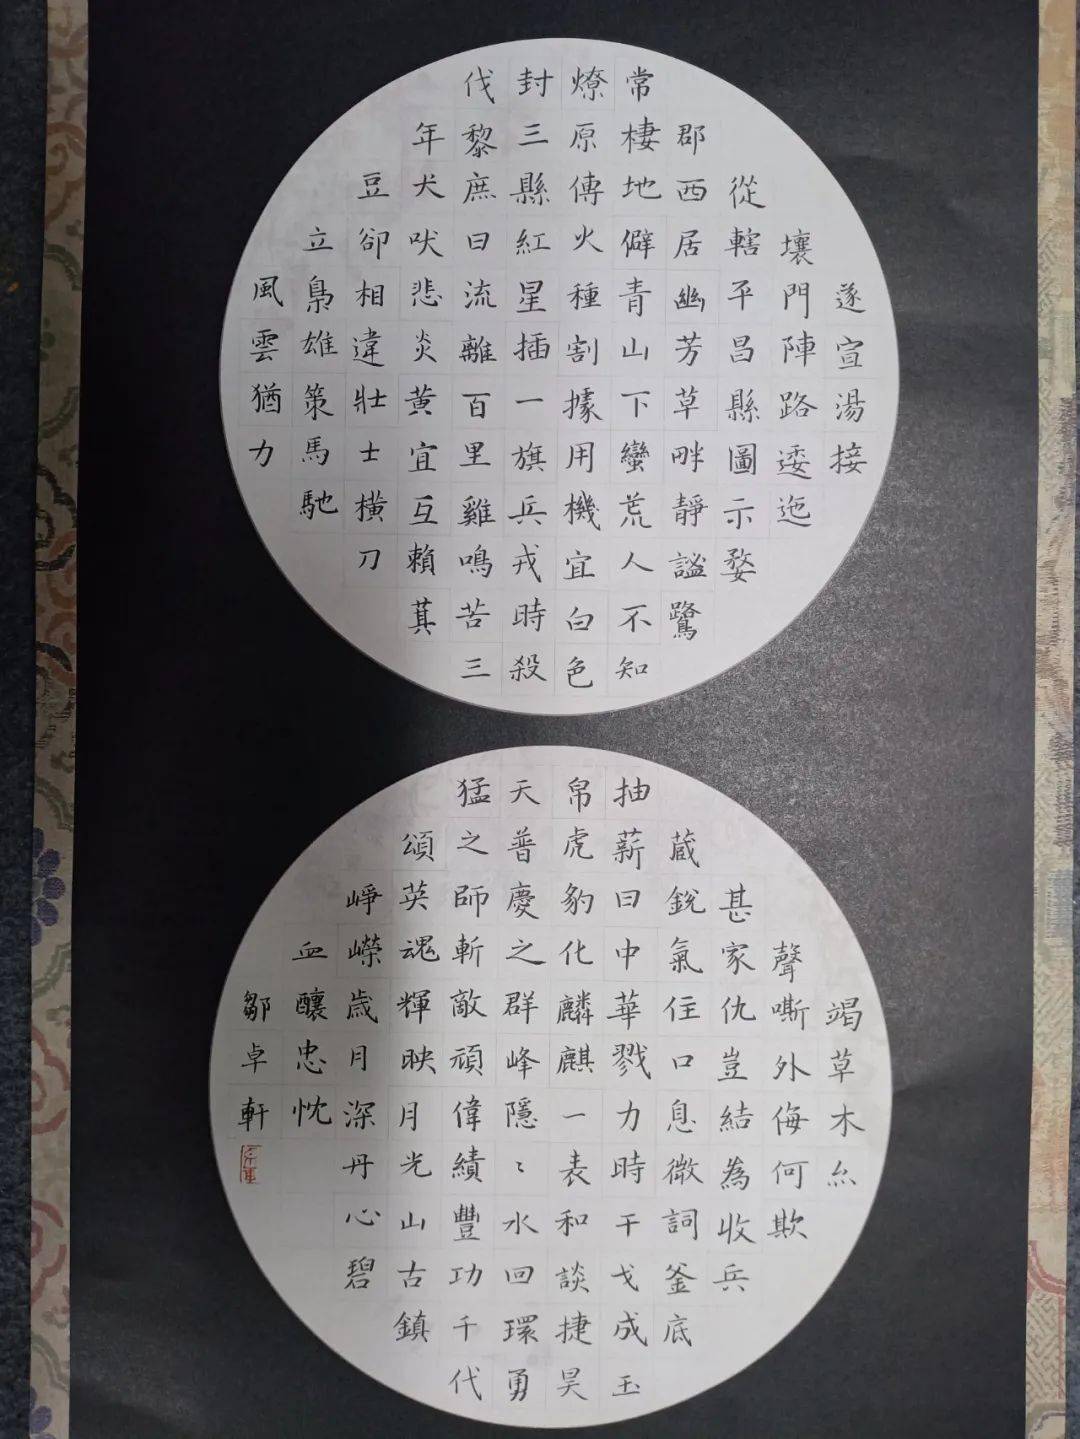 遂宣湯接
壤門陣路逶迤
從轄平昌縣圖示婺
郡西居幽芳草畔靜謐鷺
常棲地僻青山下蠻荒人不知
燎原傳火種割據用機宜白色
封三縣紅星插一旗兵戎時殺
伐黎庶曰流離百里雞鳴苦三
年犬吠悲炎黄宜互賴萁
豆卻相違壯士橫刀
立梟雄策馬馳
風雲猶力
竭草木亦
聲嘶外侮何欺
甚家仇豈結為收兵
蔵銳氣住口息微詞釜底
抽薪曰中華戮力時干戈成玉
帛虎豹化麟麒一表和談捷昊
天普慶之群峰隱〻水回環勇
猛之師斬敵頑偉績豐功千代
頌英魂輝映月光山古鎮
崢嶸歲月深丹心碧
血釀忠忱
鄒卓軒